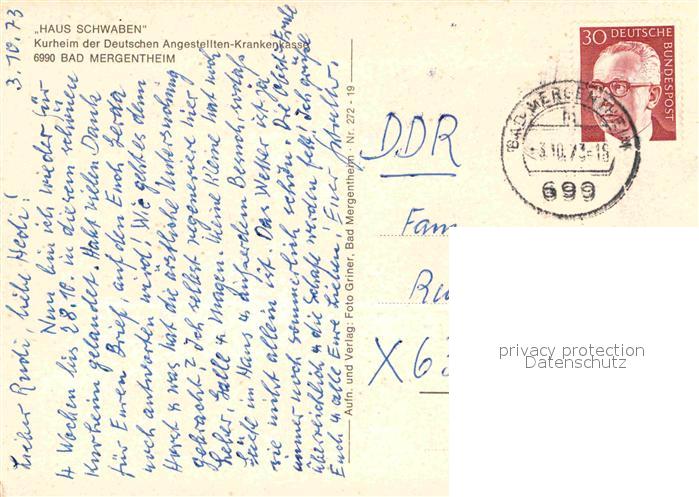 „HAUS SCHWABEN"
Kurheim der Deutschen Angestellten-Krankenkasse
6990 BAD MERGENTHEIM
3.10.73
Lieber Rudi, liebe Hedi!
Nun bin ich wieder für
4 Wochen bis 28.10 in diesem schönen
Kurheim gelandet. Habt vielen Dank
für Euren Brief, auf den Euch Gerda
noch antworten wird! Wie geht es den
Horst u was hat die ärztliche Untersuchung
gebracht? Ich selbst regeneriere hier
Leber, Galle u Magen. Meine Kleine hat noch
Gäste im Haus u außerdem Besuch, sodaß
sie nicht allein ist. Das Wetter ist ja
immer noch sommerlich schön. Die Obst-Ernte
übersichtlich u die Schafe werden fett! Ich grüße
Euch u alle Eure Lieben! Euer
Aufn. und Verlag: Foto Griner, Bad Mergentheim - Nr. 272 - 19
30 DEUTSCHE
BUNDESPOST
BAD MERGENTHEIM
-3.10.73-18
699
DDR
Fam
X63
privacy protection
Datenschutz